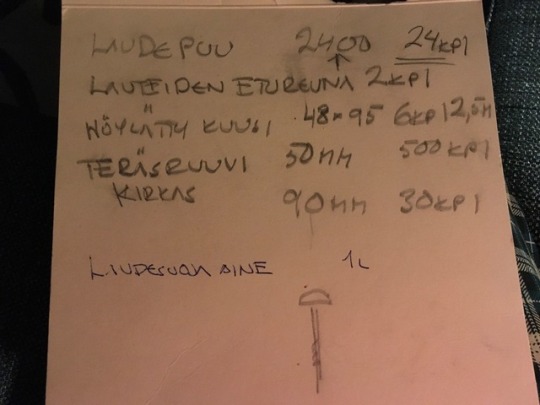 LAUDEPUU 2400 24KPL
LAUTEIDEN ETUREUNA 2KPL
HÖYLÄTTY KUUSI 48×95 6KPL 2,5M
TERÄSRUUVI 50MM 500KPL
KIRKAS 90MM 30KPL
LAUDESUOJA AINE 1L